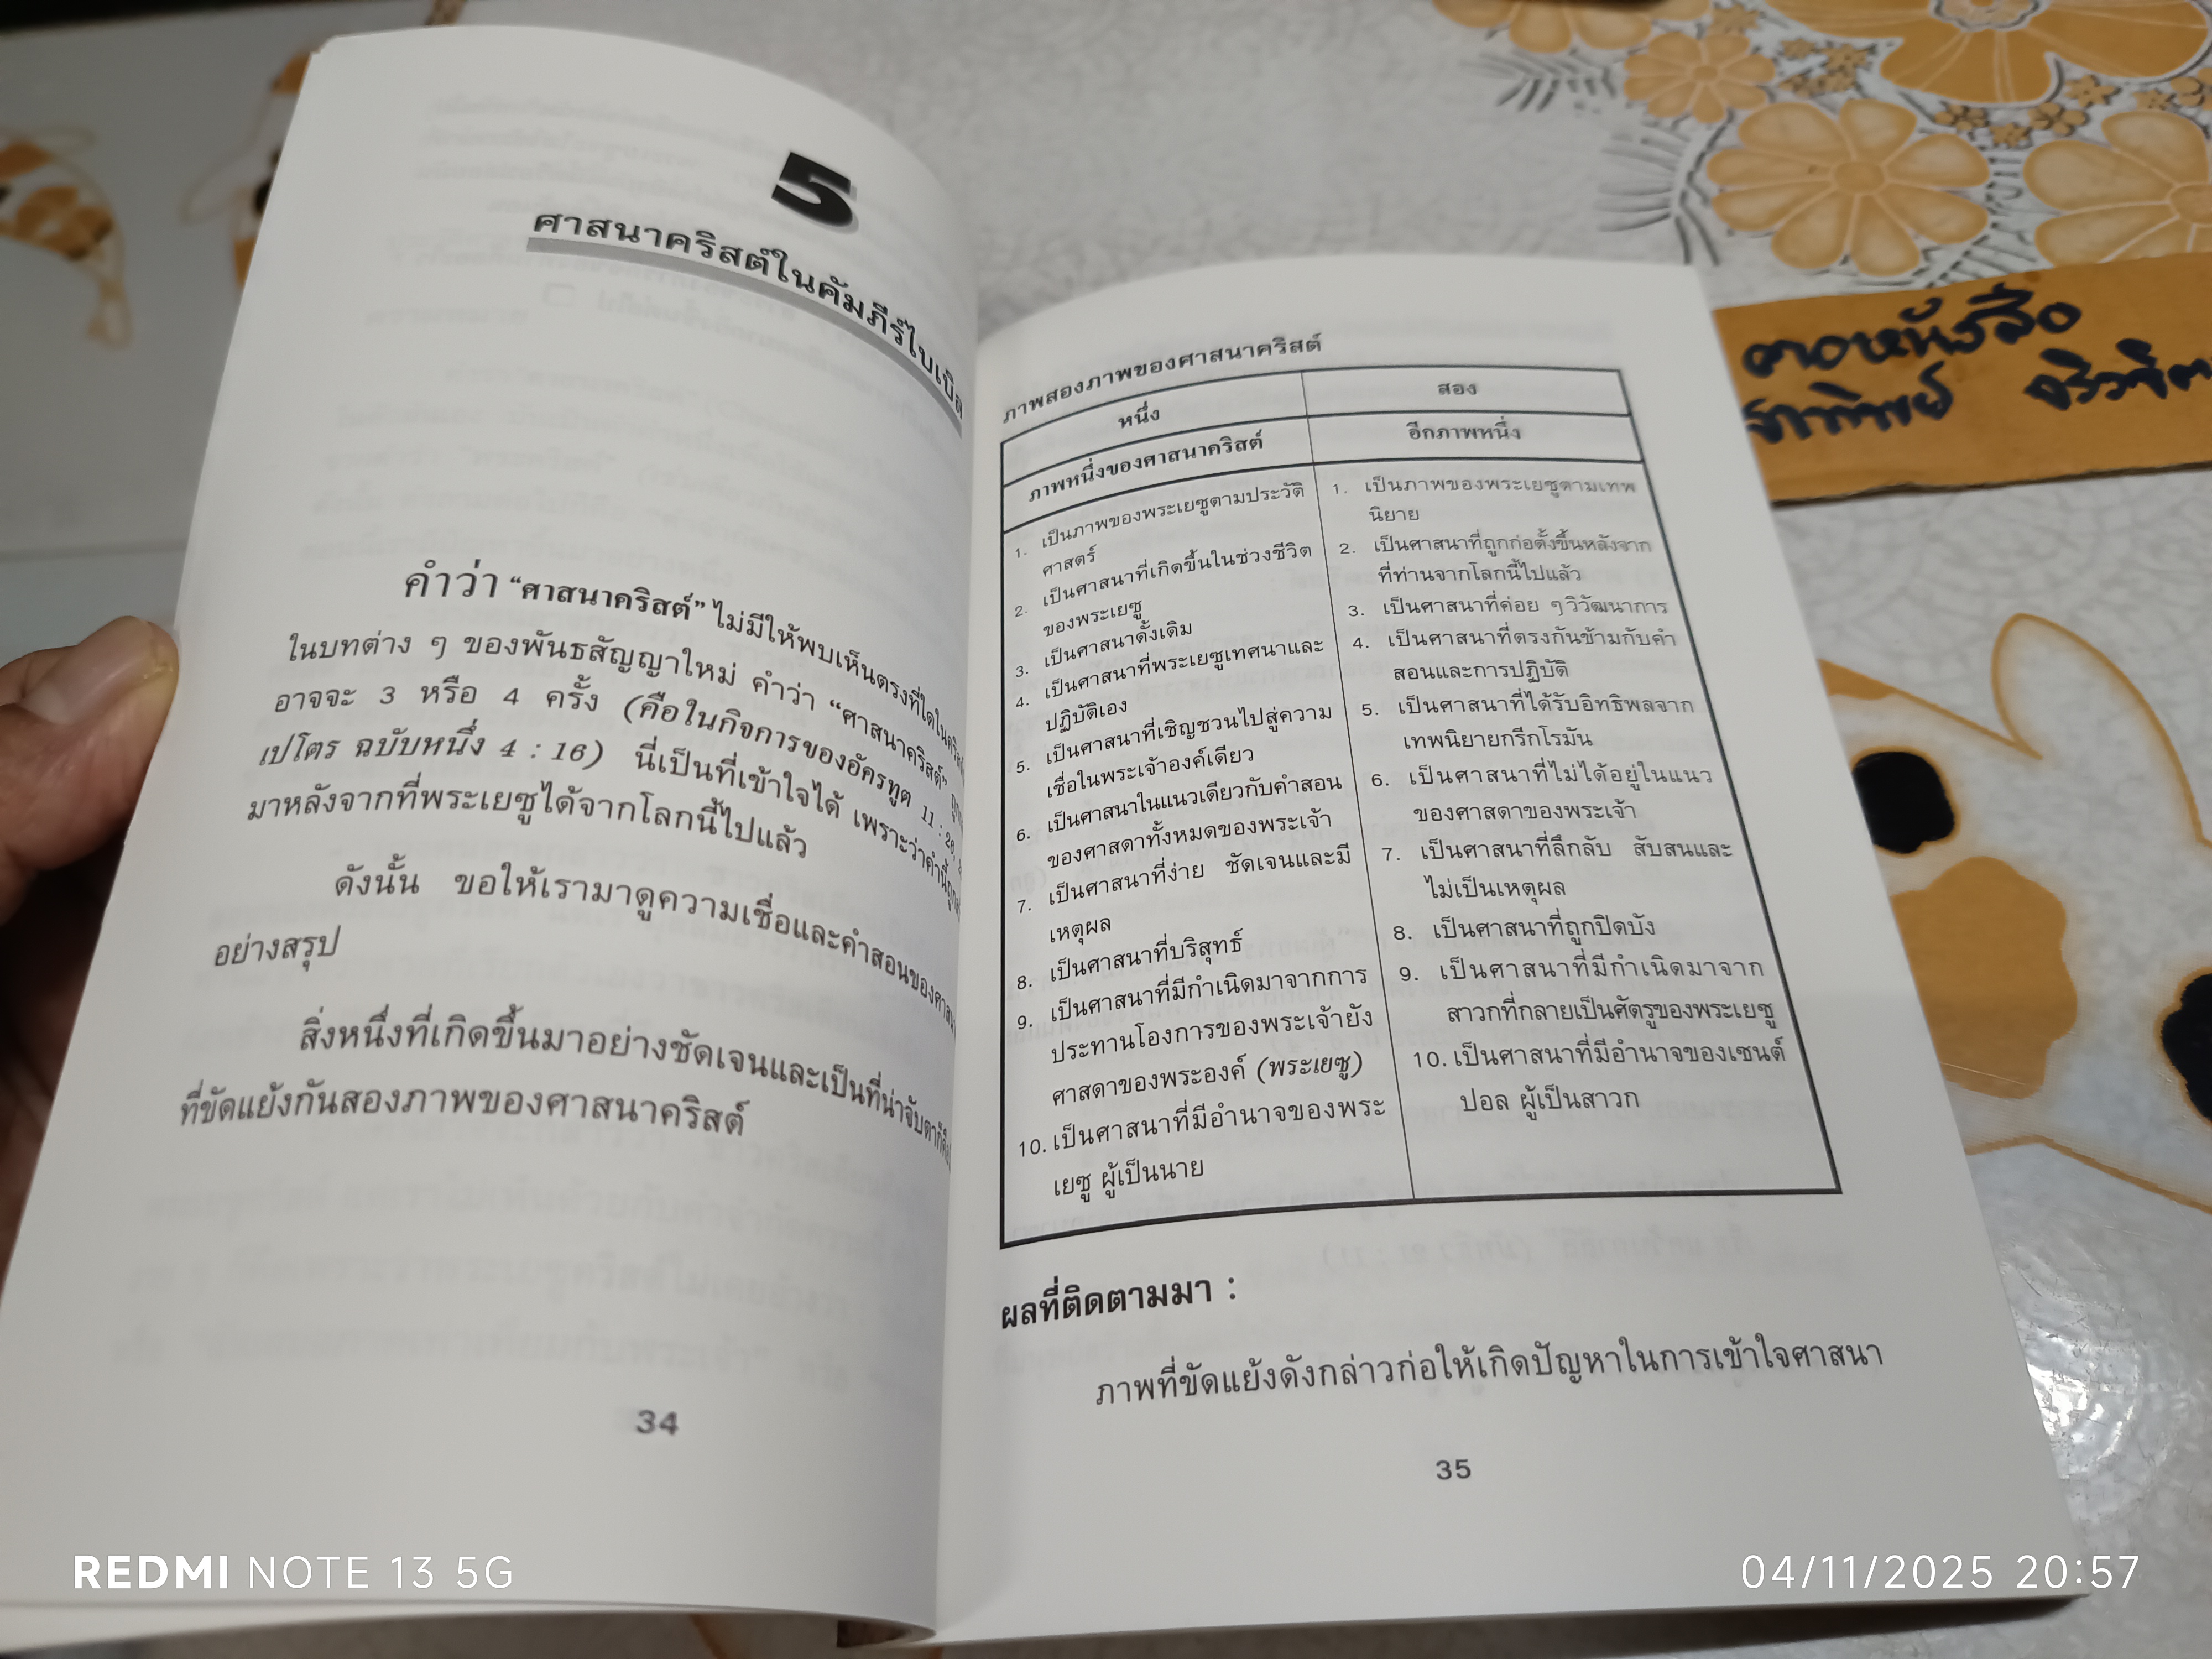 5
ศาสนาคริสต์ในคัมภีร์ไบเบิล
คำว่า “ศาสนาคริสต์” ไม่มีให้พบเห็นตรงที่ใดใน
ในบทต่าง ๆ ของพันธสัญญาใหม่ คำว่า “ศาสนาคริสต์”
อาจจะ 3 หรือ 4 ครั้ง (คือในกิจการของอัครทูต 11 : 26,
เปโตร ฉบับหนึ่ง 4 : 16) นี่เป็นที่เข้าใจได้ เพราะว่าคำนี้ถูก
มาหลังจากที่พระเยซูได้จากโลกนี้ไปแล้ว
ดังนั้น ขอให้เรามาดูความเชื่อและคำสอนของศาสนา
อย่างสรุป
สิ่งหนึ่งที่เกิดขึ้นมาอย่างชัดเจนและเป็นที่น่าจับตาก็คือ
ที่ขัดแย้งกันสองภาพของศาสนาคริสต์
34
ภาพสองภาพของศาสนาคริสต์
หนึ่ง
ภาพหนึ่งของศาสนาคริสต์
1. เป็นภาพของพระเยซูตามประวัติ
ศาสตร์
2. เป็นศาสนาที่เกิดขึ้นในช่วงชีวิต
ของพระเยซู
3. เป็นศาสนาดั้งเดิม
4. เป็นศาสนาที่พระเยซูเทศนาและ
ปฏิบัติเอง
5. เป็นศาสนาที่เชิญชวนไปสู่ความ
เชื่อในพระเจ้าองค์เดียว
6. เป็นศาสนาในแนวเดียวกับคำสอน
ของศาสดาทั้งหมดของพระเจ้า
7. เป็นศาสนาที่ง่าย ชัดเจนและมี
เหตุผล
8. เป็นศาสนาที่บริสุทธ์
9. เป็นศาสนาที่มีกำเนิดมาจากการ
ประทานโองการของพระเจ้ายัง
ศาสดาของพระองค์ (พระเยซู)
10. เป็นศาสนาที่มีอำนาจของพระ
เยซู ผู้เป็นนาย
สอง
อีกภาพหนึ่ง
1. เป็นภาพของพระเยซูตามเทพ
นิยาย
2. เป็นศาสนาที่ถูกก่อตั้งขึ้นหลังจาก
ที่ท่านจากโลกนี้ไปแล้ว
3. เป็นศาสนาที่ค่อย ๆ วิวัฒนาการ
4. เป็นศาสนาที่ตรงกันข้ามกับคำ
สอนและการปฏิบัติ
5. เป็นศาสนาที่ได้รับอิทธิพลจาก
เทพนิยายกรีกโรมัน
6. เป็นศาสนาที่ไม่ได้อยู่ในแนว
ของศาสดาของพระเจ้า
7. เป็นศาสนาที่ลึกลับ สับสนและ
ไม่เป็นเหตุผล
8. เป็นศาสนาที่ถูกปิดบัง
9. เป็นศาสนาที่มีกำเนิดมาจาก
สาวกที่กลายเป็นศัตรูของพระเยซู
10. เป็นศาสนาที่มีอำนาจของเซนต์
ปอล ผู้เป็นสาวก
ผลที่ติดตามมา :
ภาพที่ขัดแย้งดังกล่าวก่อให้เกิดปัญหาในการเข้าใจศาสนา
35
REDMI NOTE 13 5G
04/11/2025 20:57